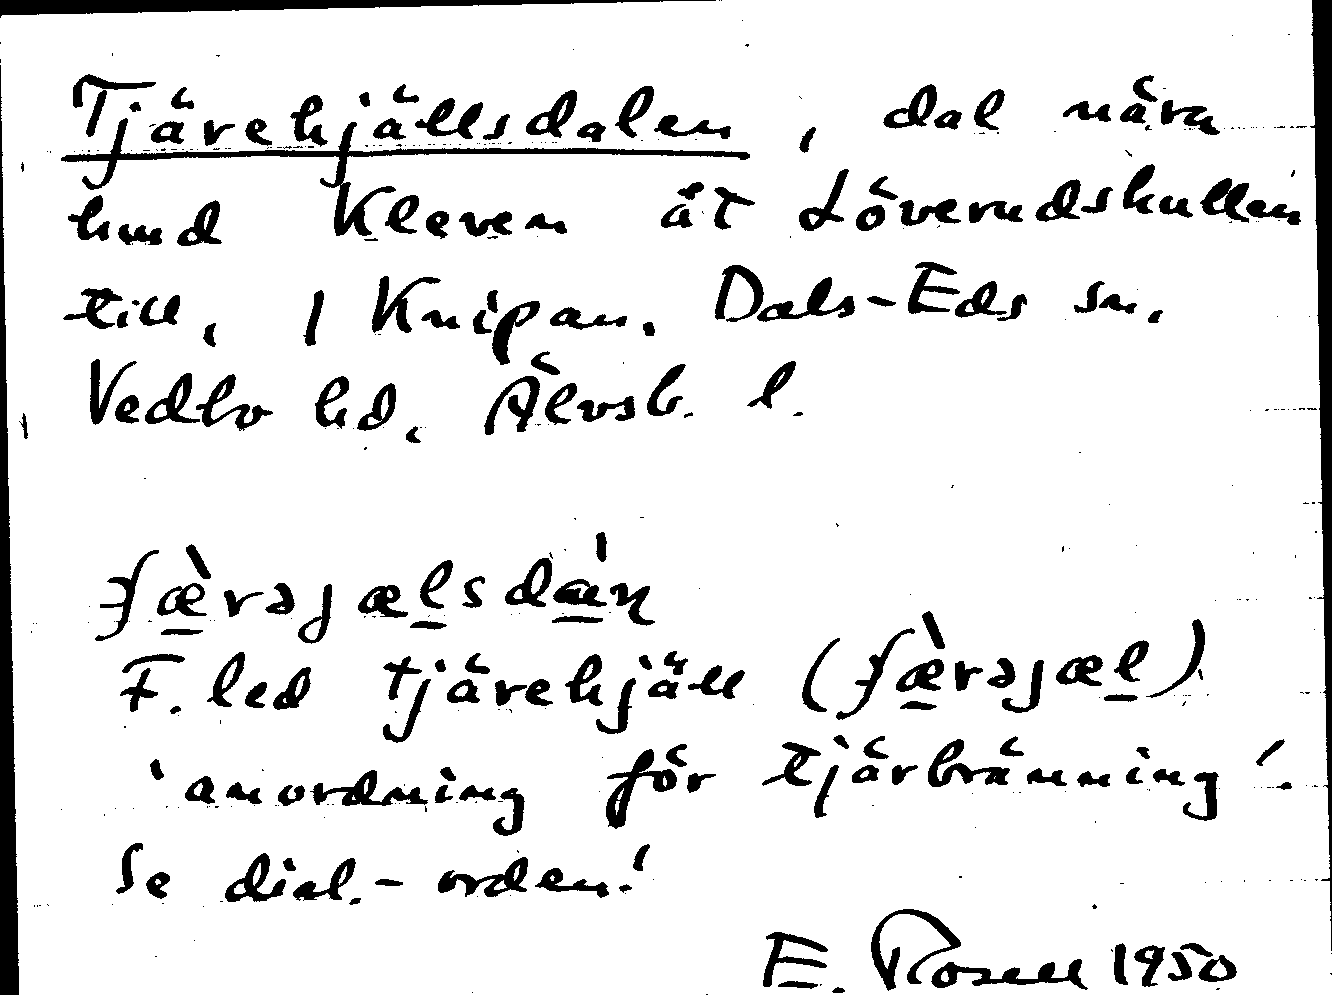 Tjärehjällsdalen, dal nära
hmd Kleven åt Löverudskullen
till, 1 Knipan. Dals-Eds sn.
Vedbo hd. Älvsb. l.
F. led tjärehjäll
'anordning för tjärbränning'.
Se dial.-orden!
E. Rosell 1950